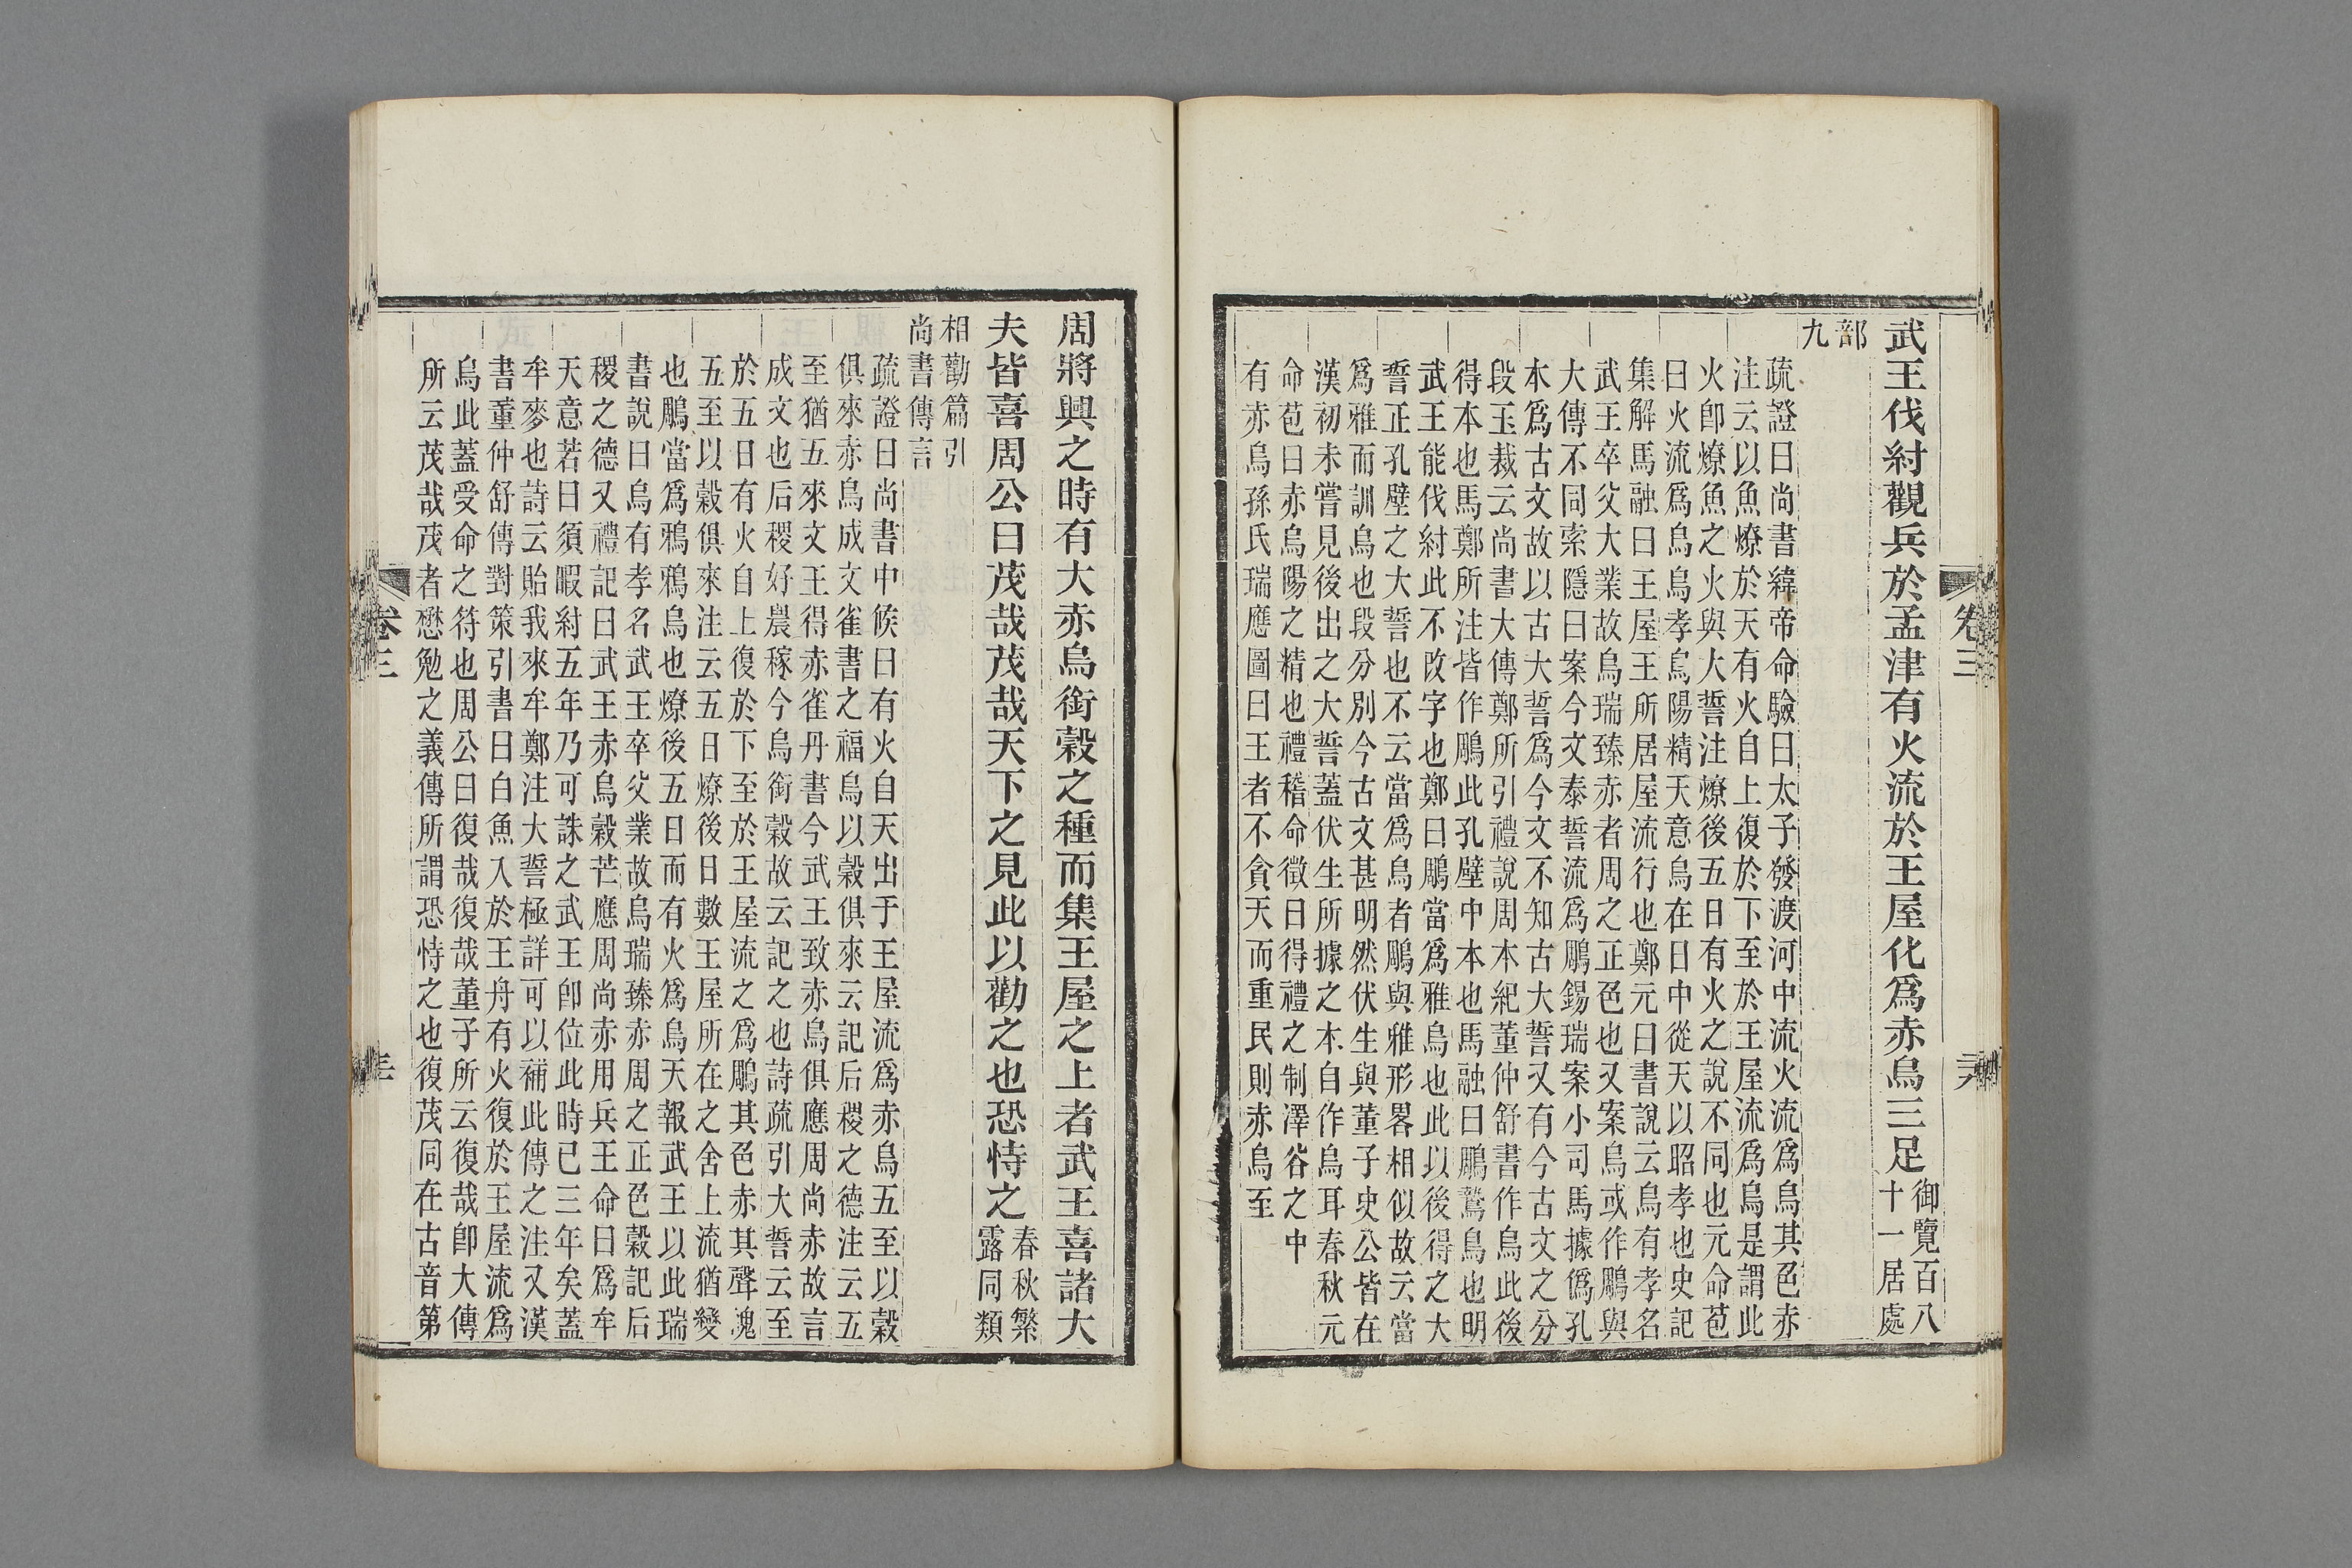 武王伐紂觀兵於孟津有火流於王屋化爲赤烏三足
御覽百八
十一居處
部
九
疏證曰尚書緯帝命驗曰太子發渡河中流火流爲烏其色赤
注云以魚燎於天有火自上復於下至於王屋流爲烏是謂此
火卽燎魚之火與大誓注燎後五日有火之說不同也元命苞
曰火流爲烏烏孝鳥陽精天意烏在日中從天以昭孝也史記
集解馬融曰王屋王所居屋流行也鄭元曰書說云烏有孝名
武王卒父大業故烏瑞臻赤者周之正色也又案烏或作鵰與
大傳不同索隱曰案今文泰誓流爲鵰鍚瑞案小司馬據僞孔
本爲古文故以古大誓爲今文不知古大誓又有今古文之分
段玉裁云尚書大傳鄭所引禮說周本紀董仲舒書作烏此後
得本也馬鄭所注皆作鵰此孔壁中本也馬融曰鵰鷙鳥也明
武王能伐紂此不改字也鄭曰鵰當爲雅烏也此以後得之大
誓正孔壁之大誓也不云當爲烏者鵰與雅形畧相似故云當
爲雅而訓烏也段分別今古文甚明然伏生與董子史公皆在
漢初未嘗見後出之大誓蓋伏生所據之本自作烏耳春秋元
命苞曰赤烏陽之精也禮稽命徵曰得禮之制澤谷之中
有赤烏孫氏瑞應圖曰王者不貪天而重民則赤烏至
卷三
周將興之時有大赤烏銜穀之種而集王屋之上者武王喜諸大
夫皆喜周公曰茂哉茂哉天下之見此以勸之也恐恃之
春秋繁
露同類
相勸篇引
尚書傳言
疏證曰尚書中候曰有火自天出于王屋流爲赤烏五至以穀
俱來赤烏成文雀書之福烏以穀俱來云記后稷之德注云五
至猶五來文王得赤雀丹書今武王致赤烏俱應周尚赤故言
成文也后稷好農稼今烏銜穀故云記之也詩疏引大誓云至
於五日有火自上復於下至於王屋流之爲鵰其色赤其聲魄
五至以穀俱來注云五日燎後日數王屋所在之舍上流猶變
也鵰當爲鴉鴉烏也燎後五日而有火爲烏天報武王以此瑞
書說曰烏有孝名武王卒父業故烏瑞臻赤周之正色穀記后
稷之德又禮記曰武王赤烏穀芒應周尚赤用兵王命曰爲牟
天意若曰須暇紂五年乃可誅之武王卽位此時已三年矣蓋
牟麥也詩云貽我來牟鄭注大誓極詳可以補此傳之注又漢
書董仲舒傳對策引書曰白魚入於王舟有火復於王屋流爲
烏此蓋受命之符也周公曰復哉復哉董子所云復哉卽大傳
所云茂哉茂者懋勉之義傳所謂恐恃之也復茂同在古音第
卷三